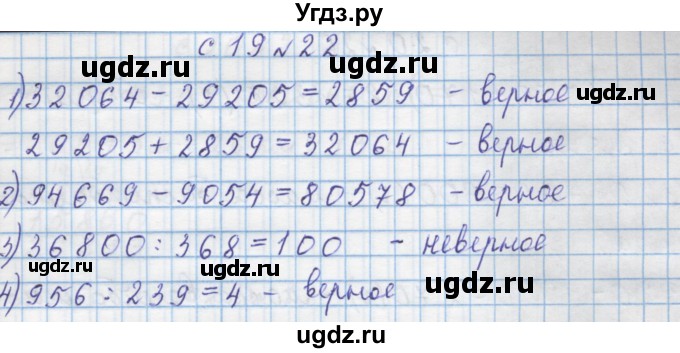 Угдз.ру
с 19 № 22
ugdz.ru ugdz.ru
1) 32064 - 29205 = 2859 - верное
ugdz.ru
29205 + 2859 = 32064 - верное
ugdz.ru ugdz.ru
2) 94669 - 9054 = 80578 - верное
ugdz.ru
3) 36800 : 368 = 100 - неверное
ugdz.ru
4) 956 : 239 = 4 - верное
ugdz.ru
ugdz.ru